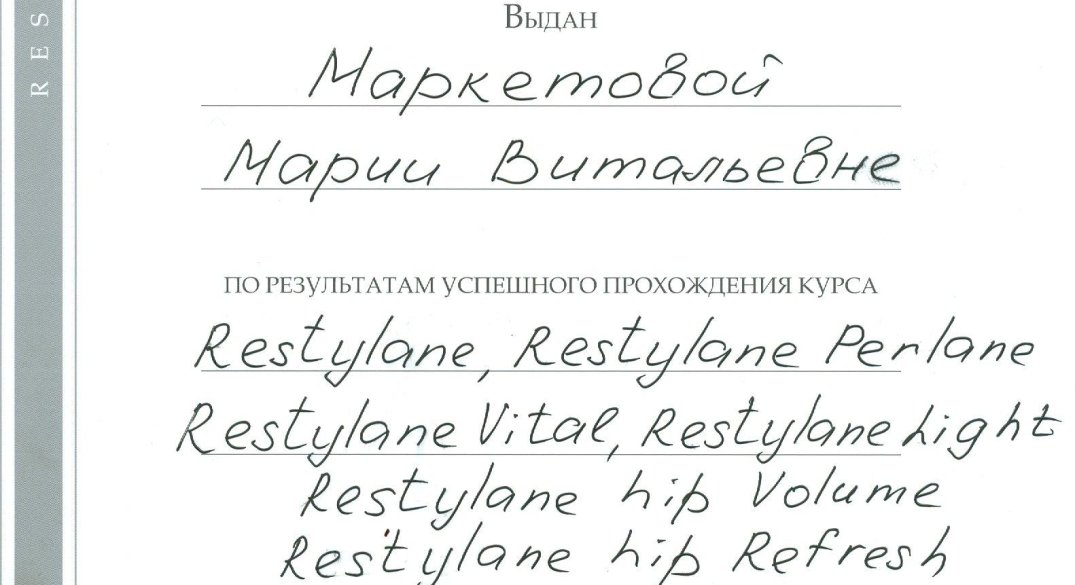 RES
Выдан
Маркетовой
Марии Витальевне
ПО РЕЗУЛЬТАТАМ УСПЕШНОГО ПРОХОЖДЕНИЯ КУРСА
Restylane, Restylane Perlane
Restylane Vital, Restylane Light
Restylane Lip Volume
Restylane Lip Refresh